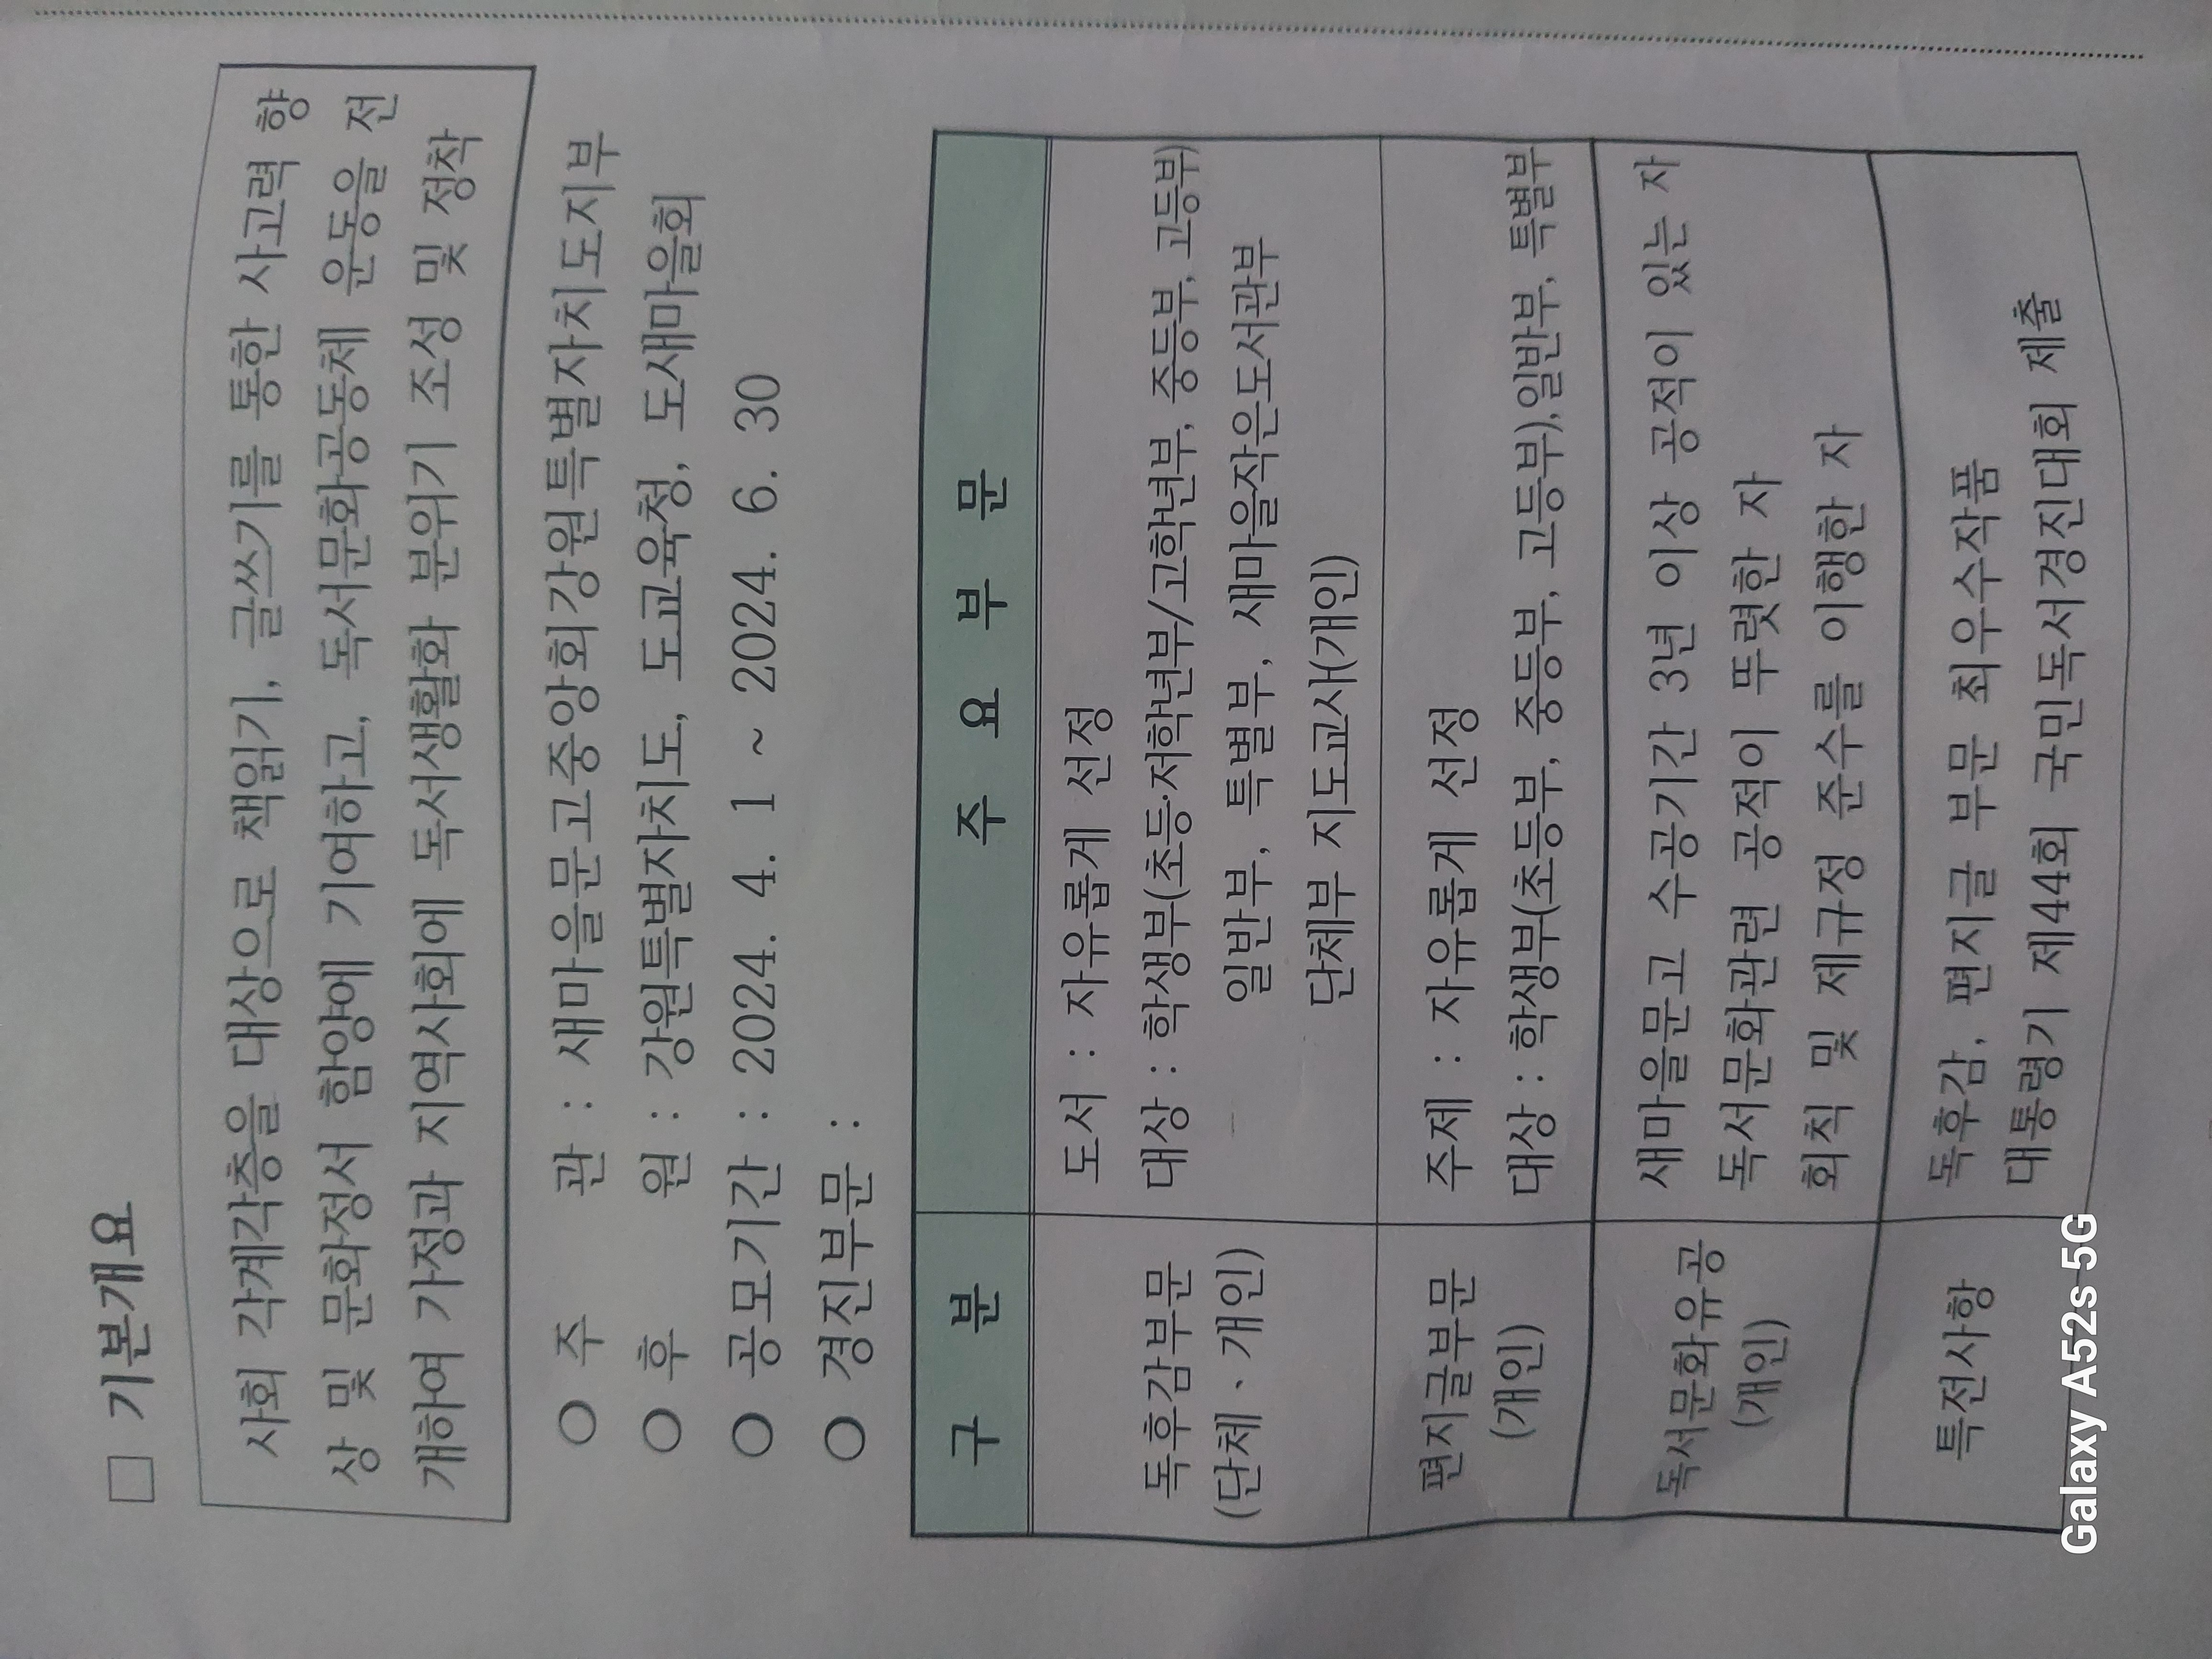 □ 기본개요
사회 각계각층을 대상으로 책읽기, 글쓰기를 통한 사고력 향
상 및 문화정서 함양에 기여하고, 독서문화공동체 운동을 전
개하여 가정과 지역사회에 독서생활화 분위기 조성 및 정착
○ 주 관 : 새마을문고중앙회강원특별자치도지부
○ 후 원 : 강원특별자치도, 도교육청, 도새마을회
○ 공모기간 : 2024. 4. 1 ~ 2024. 6. 30
○ 경진부문 :
구 분 주 요 부 문
독후감부문
(단체ㆍ개인)
도서 : 자유롭게 선정
대상 : 학생부(초등·저학년부/고학년부, 중등부, 고등부)
일반부, 특별부, 새마을작은도서관부
단체부 지도교사(개인)
편지글부문
(개인)
주제 : 자유롭게 선정
대상 : 학생부(초등부, 중등부, 고등부),일반부, 특별부
독서문화유공
(개인)
새마을문고 수공기간 3년 이상 공적이 있는 자
독서문화관련 공적이 뚜렷한 자
회칙 및 제규정 준수를 이행한 자
특전사항
독후감, 편지글 부문 최우수작품
대통령기 제44회 국민독서경진대회 제출
Galaxy A52s 5G